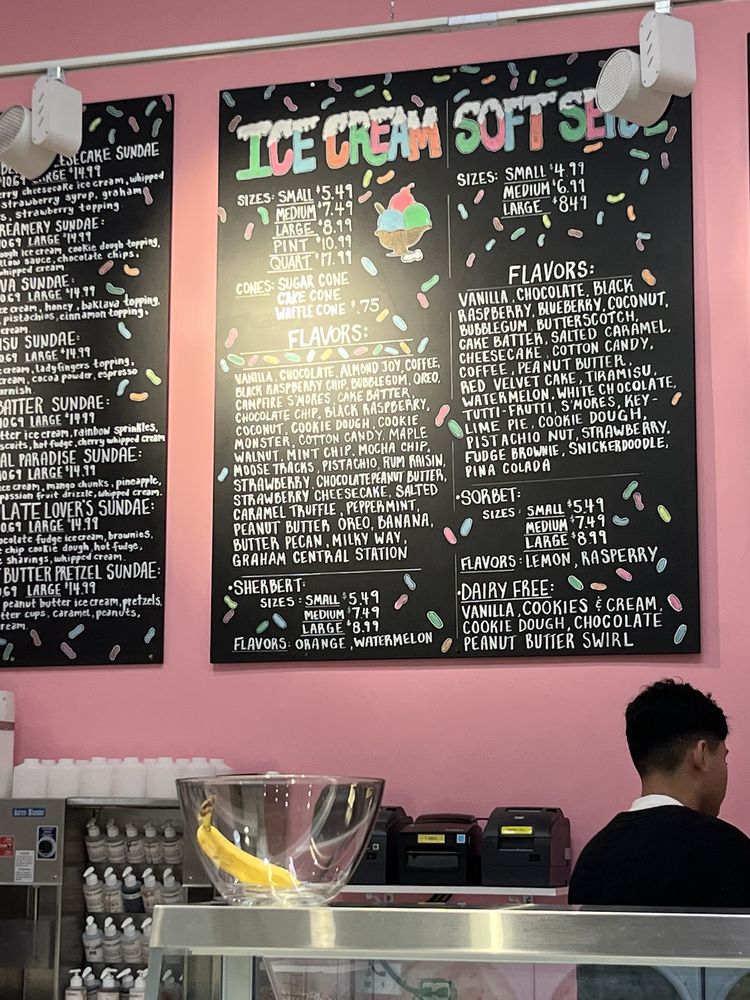 ESECAKE SUNDAE
10.69 LARGE $14.99
rry cheesecake ice cream, whipped
, strawberry syrup, graham
s, strawberry topping
REAMERY SUNDAE:
10.69 LARGE $14.99
ough ice cream, cookie dough topping,
low sauce, chocolate chips,
whipped cream.
VA SUNDAE:
10.69 LARGE $14.99
ce cream, honey, baklava topping,
, pistachios, cinnamon topping,
cream.
ISU SUNDAE:
0.69 LARGE $14.99
ce cream, Ladyfingers topping,
cream, cocoa powder, espresso
arnish
BATTER SUNDAE:
0.69 LARGE $14.99
tter ice cream, rainbow sprinkles,
scuits, hot fudge, cherry whipped cream
AL PARADISE SUNDAE:
0.69 LARGE $14.99
ice cream, mango chunks, pineapple,
passion fruit drizzle, whipped cream.
LATE LOVER'S SUNDAE:
0.69 LARGE $14.99
ocolate fudge icecream, brownies,
chip cookie dough, hot fudge,
shavings, whipped cream.
BUTTER PRETZEL SUNDAE:
0.69 LARGE $14.99
peanut butter ice cream, pretzels,
tter cups, caramel, peanuts,
ream.
ICE CREAM
SIZES: SMALL $5.49
MEDIUM $7.49
LARGE $8.99
PINT $10.99
QUART $17.99
CONES: SUGAR CONE
CAKE CONE
WAFFLE CONE $.75
FLAVORS:
VANILLA, CHOCOLATE, ALMOND JOY, COFFEE,
BLACK RASPBERRY CHIP, BUBBLEGUM, OREO,
CAMPFIRE S'MORES, CAKE BATTER,
CHOCOLATE CHIP, BLACK RASPBERRY,
COCONUT, COOKIE DOUGH, COOKIE
MONSTER, COTTON CANDY, MAPLE
WALNUT, MINT CHIP, MOCHA CHIP,
MOOSE TRACKS, PISTACHIO, RUM RAISIN,
STRAWBERRY, CHOCOLATE PEANUT BUTTER,
STRAWBERRY CHEESECAKE, SALTED
CARAMEL TRUFFLE, PEPPERMINT,
PEANUT BUTTER OREO, BANANA,
BUTTER PECAN, MILKY WAY,
GRAHAM CENTRAL STATION
•SHERBERT:
SIZES: SMALL $5.49
MEDIUM $7.49
LARGE $8.99
FLAVORS: ORANGE, WATERMELON
SOFT SERVE
SIZES: SMALL $4.99
MEDIUM $6.99
LARGE $8.49
FLAVORS:
VANILLA, CHOCOLATE, BLACK
RASPBERRY, BLUEBERRY, COCONUT,
BUBBLEGUM, BUTTERSCOTCH,
CAKE BATTER, SALTED CARAMEL,
CHEESECAKE, COTTON CANDY,
COFFEE, PEANUT BUTTER,
RED VELVET CAKE, TIRAMISU,
WATERMELON, WHITE CHOCOLATE,
TUTTI-FRUTTI, S'MORES, KEY-
LIME PIE, COOKIE DOUGH,
PISTACHIO NUT, STRAWBERRY,
FUDGE BROWNIE, SNICKERDOODLE,
PINA COLADA
•SORBET:
SIZES: SMALL $5.49
MEDIUM $7.49
LARGE $8.99
FLAVORS: LEMON, RASPERRY
•DAIRY FREE:
VANILLA, COOKIES & CREAM,
COOKIE DOUGH, CHOCOLATE
PEANUT BUTTER SWIRL
Astro Blender